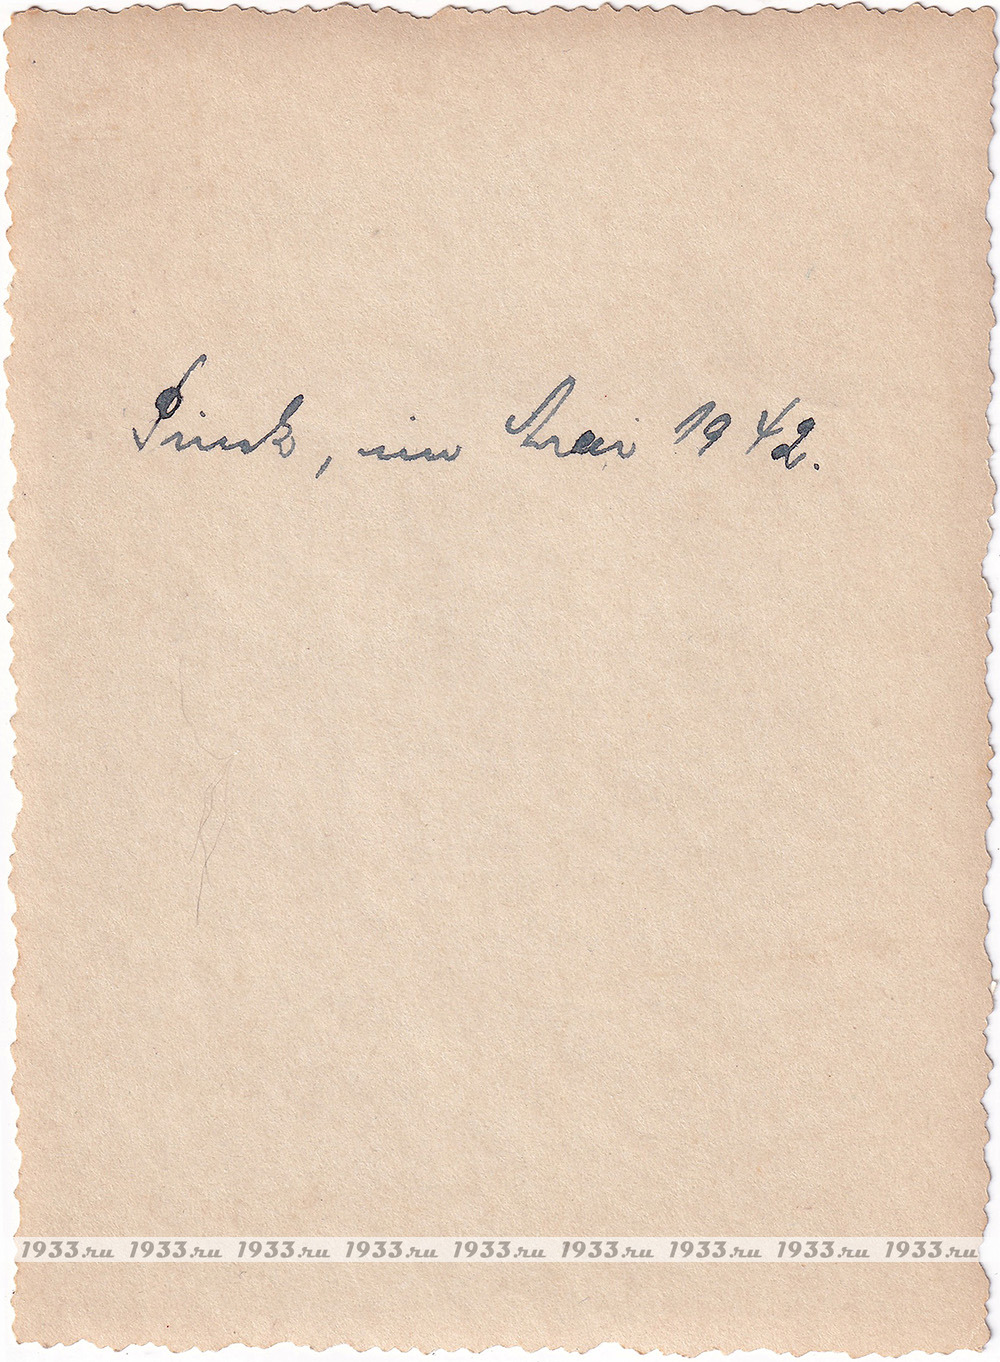 Pinsk, im Mai 1942.
1933.ru 1933.ru 1933.ru 1933.ru 1933.ru 1933.ru 1933.ru 1933.ru 1933.ru